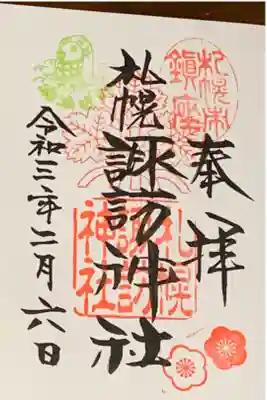 奉拝
札幌市
鎮座
札幌
諏訪神社
札幌
諏訪
神社
令和三年二月六日